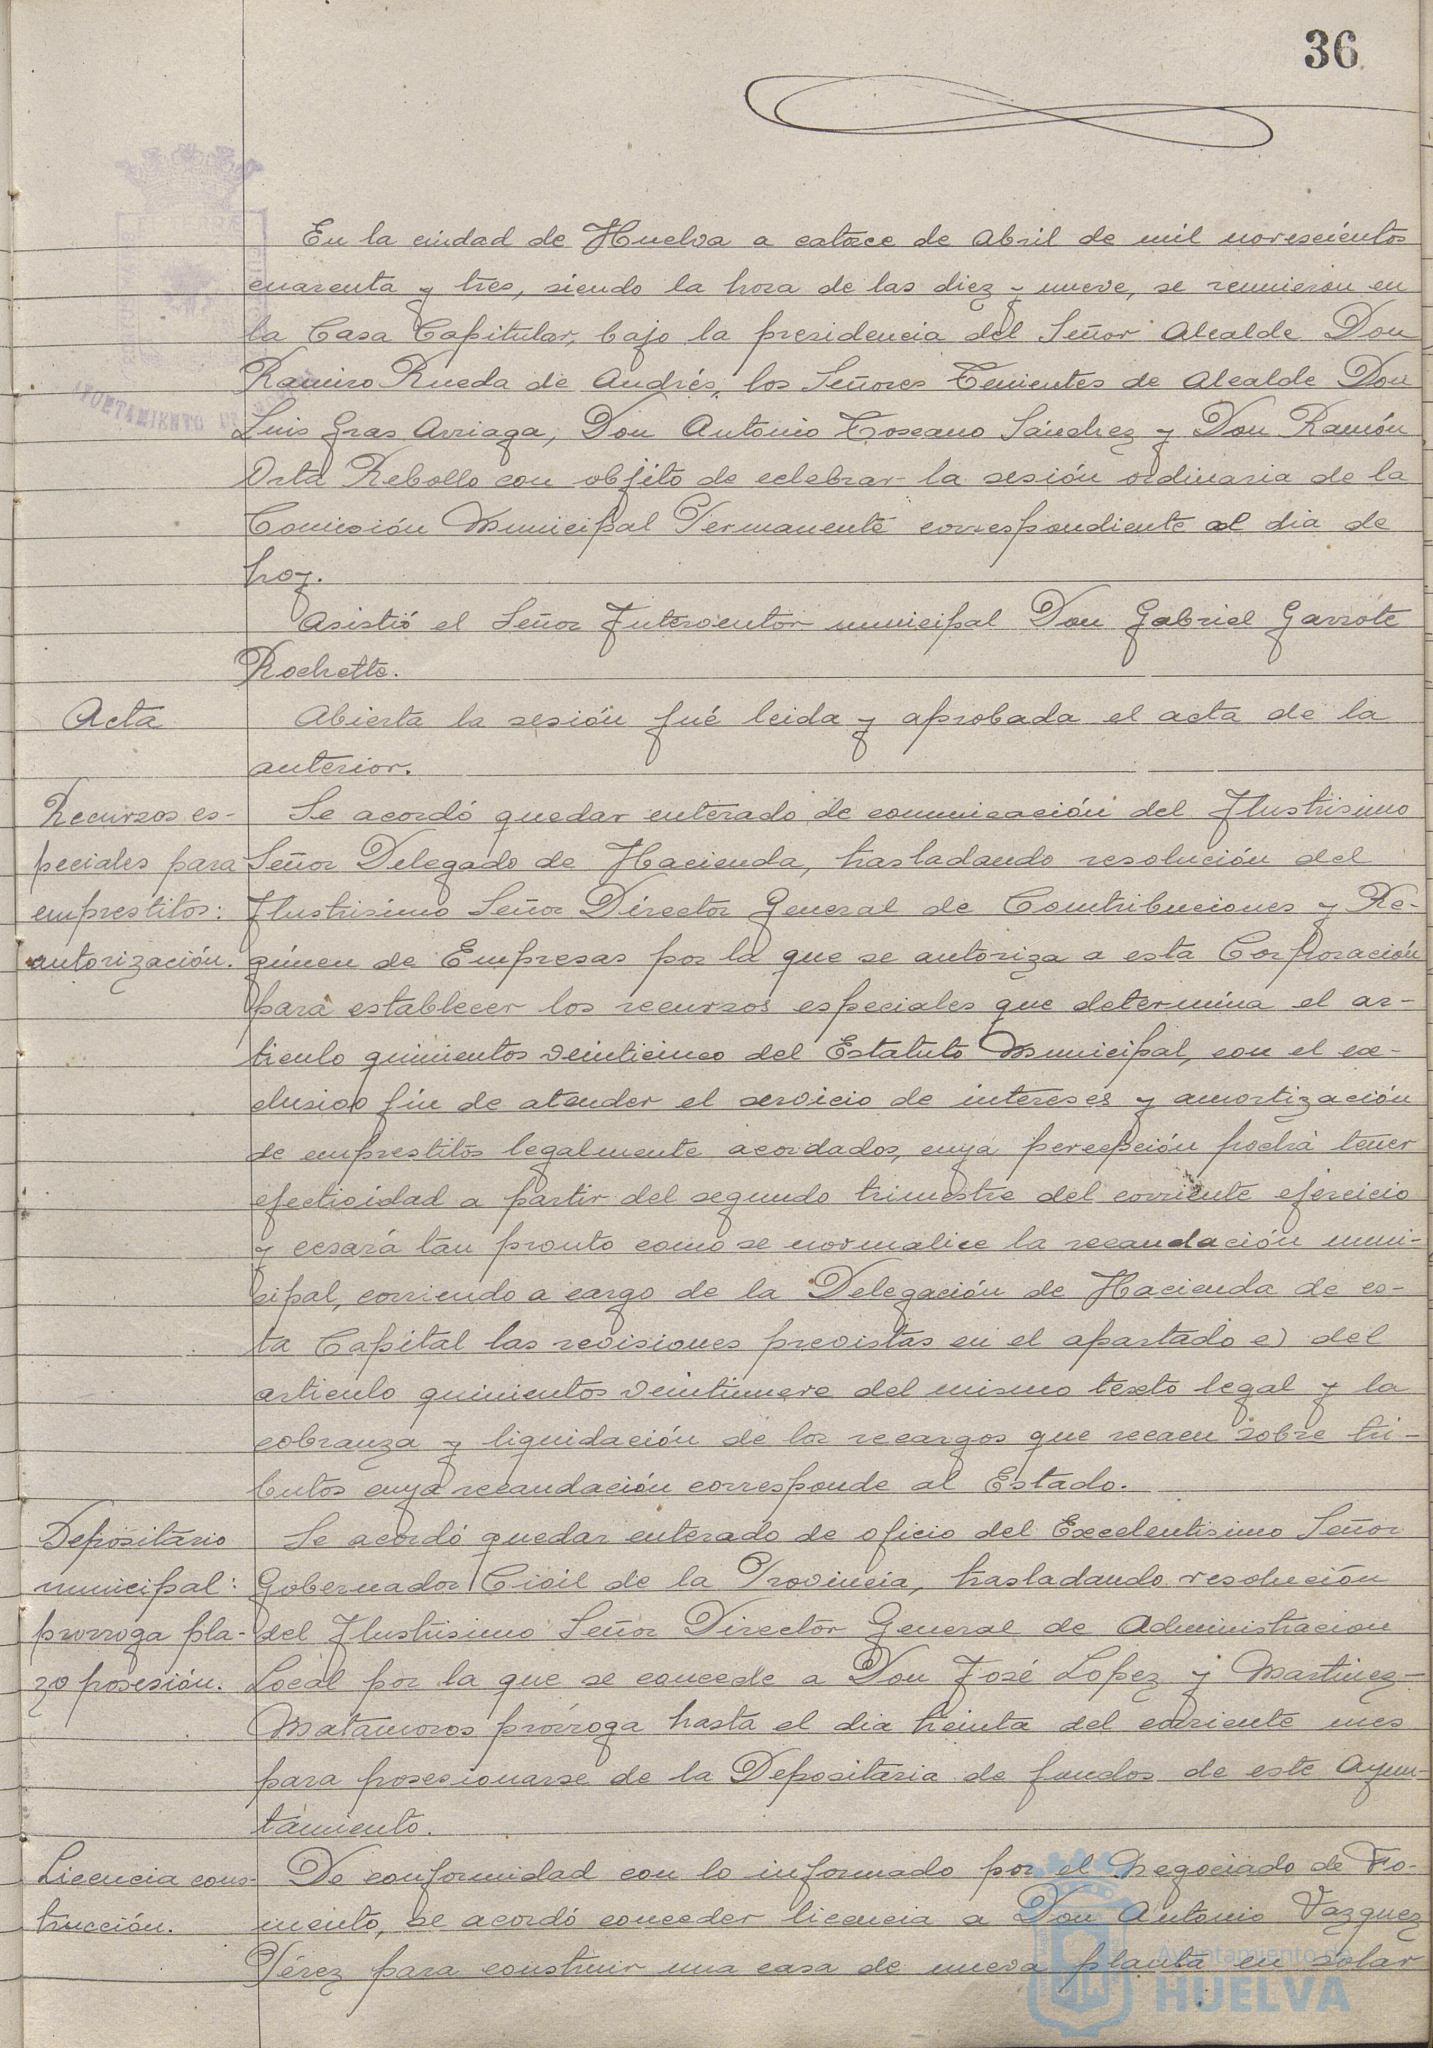 36
En la ciudad de Huelva a catorce de Abril de mil novescientos
cuarenta y tres, siendo la hora de las diez y nueve, se reunieron en
la Casa Capitular, bajo la presidencia del Señor Alcalde Don
Ramiro Rueda de Andrés, los Señores Tenientes de Alcalde Don
Luis Gras Arriaga, Don Antonio Toscano Sánchez y Don Ramón
Orta Rebollo con objeto de celebrar la sesión ordinaria de la
Comisión Municipal Permanente correspondiente al dia de
hoy.
Asistió el Señor Interventor municipal Don Gabriel Garrote
Rochette.
Acta
Abierta la sesión fué leida y aprobada el acta de la
anterior.
Recursos es-
peciales para
emprestitos:
autorización.
Se acordó quedar enterado de comunicación del Ilustrisimo
Señor Delegado de Hacienda, trasladando resolución del
Ilustrisimo Señor Director General de Contribuciones y Ré-
gimen de Empresas por la que se autoriza a esta Corporación
para establecer los recursos especiales que determina el ar-
ticulo quinientos veinticinco del Estatuto Municipal, con el ex-
clusivo fin de atender el servicio de intereses y amortización
de emprestitos legalmente acordados, cuya percepción podrá tener
efectividad a partir del segundo trimestre del corriente ejercicio
y cesará tan pronto como se normalice la recaudación muni-
cipal, corriendo a cargo de la Delegación de Hacienda de es-
ta Capital las revisiones previstas en el apartado e) del
articulo quinientos veintinueve del mismo texto legal y la
cobranza y liquidación de los recargos que recaen sobre tri-
butos cuya recaudación corresponde al Estado.
Depositario
municipal:
prorroga pla-
zo posesión.
Se acordó quedar enterado de oficio del Excelentisimo Señor
Gobernador Civil de la Provincia, trasladando resolución
del Ilustrisimo Señor Director General de Administracion
Local por la que se concede a Don José Lopez y Martinez-
Matamoros prórroga hasta el dia treinta del corriente mes
para posesionarse de la Depositaria de fondos de este Ayun-
tamiento.
Licencia cons-
trucción.
De conformidad con lo informado por el Negociado de Fo-
mento, se acordó conceder licencia a Don Antonio Vazquez
Pérez para construir una casa de nueva planta en solar
Ayuntamiento de
HUELVA